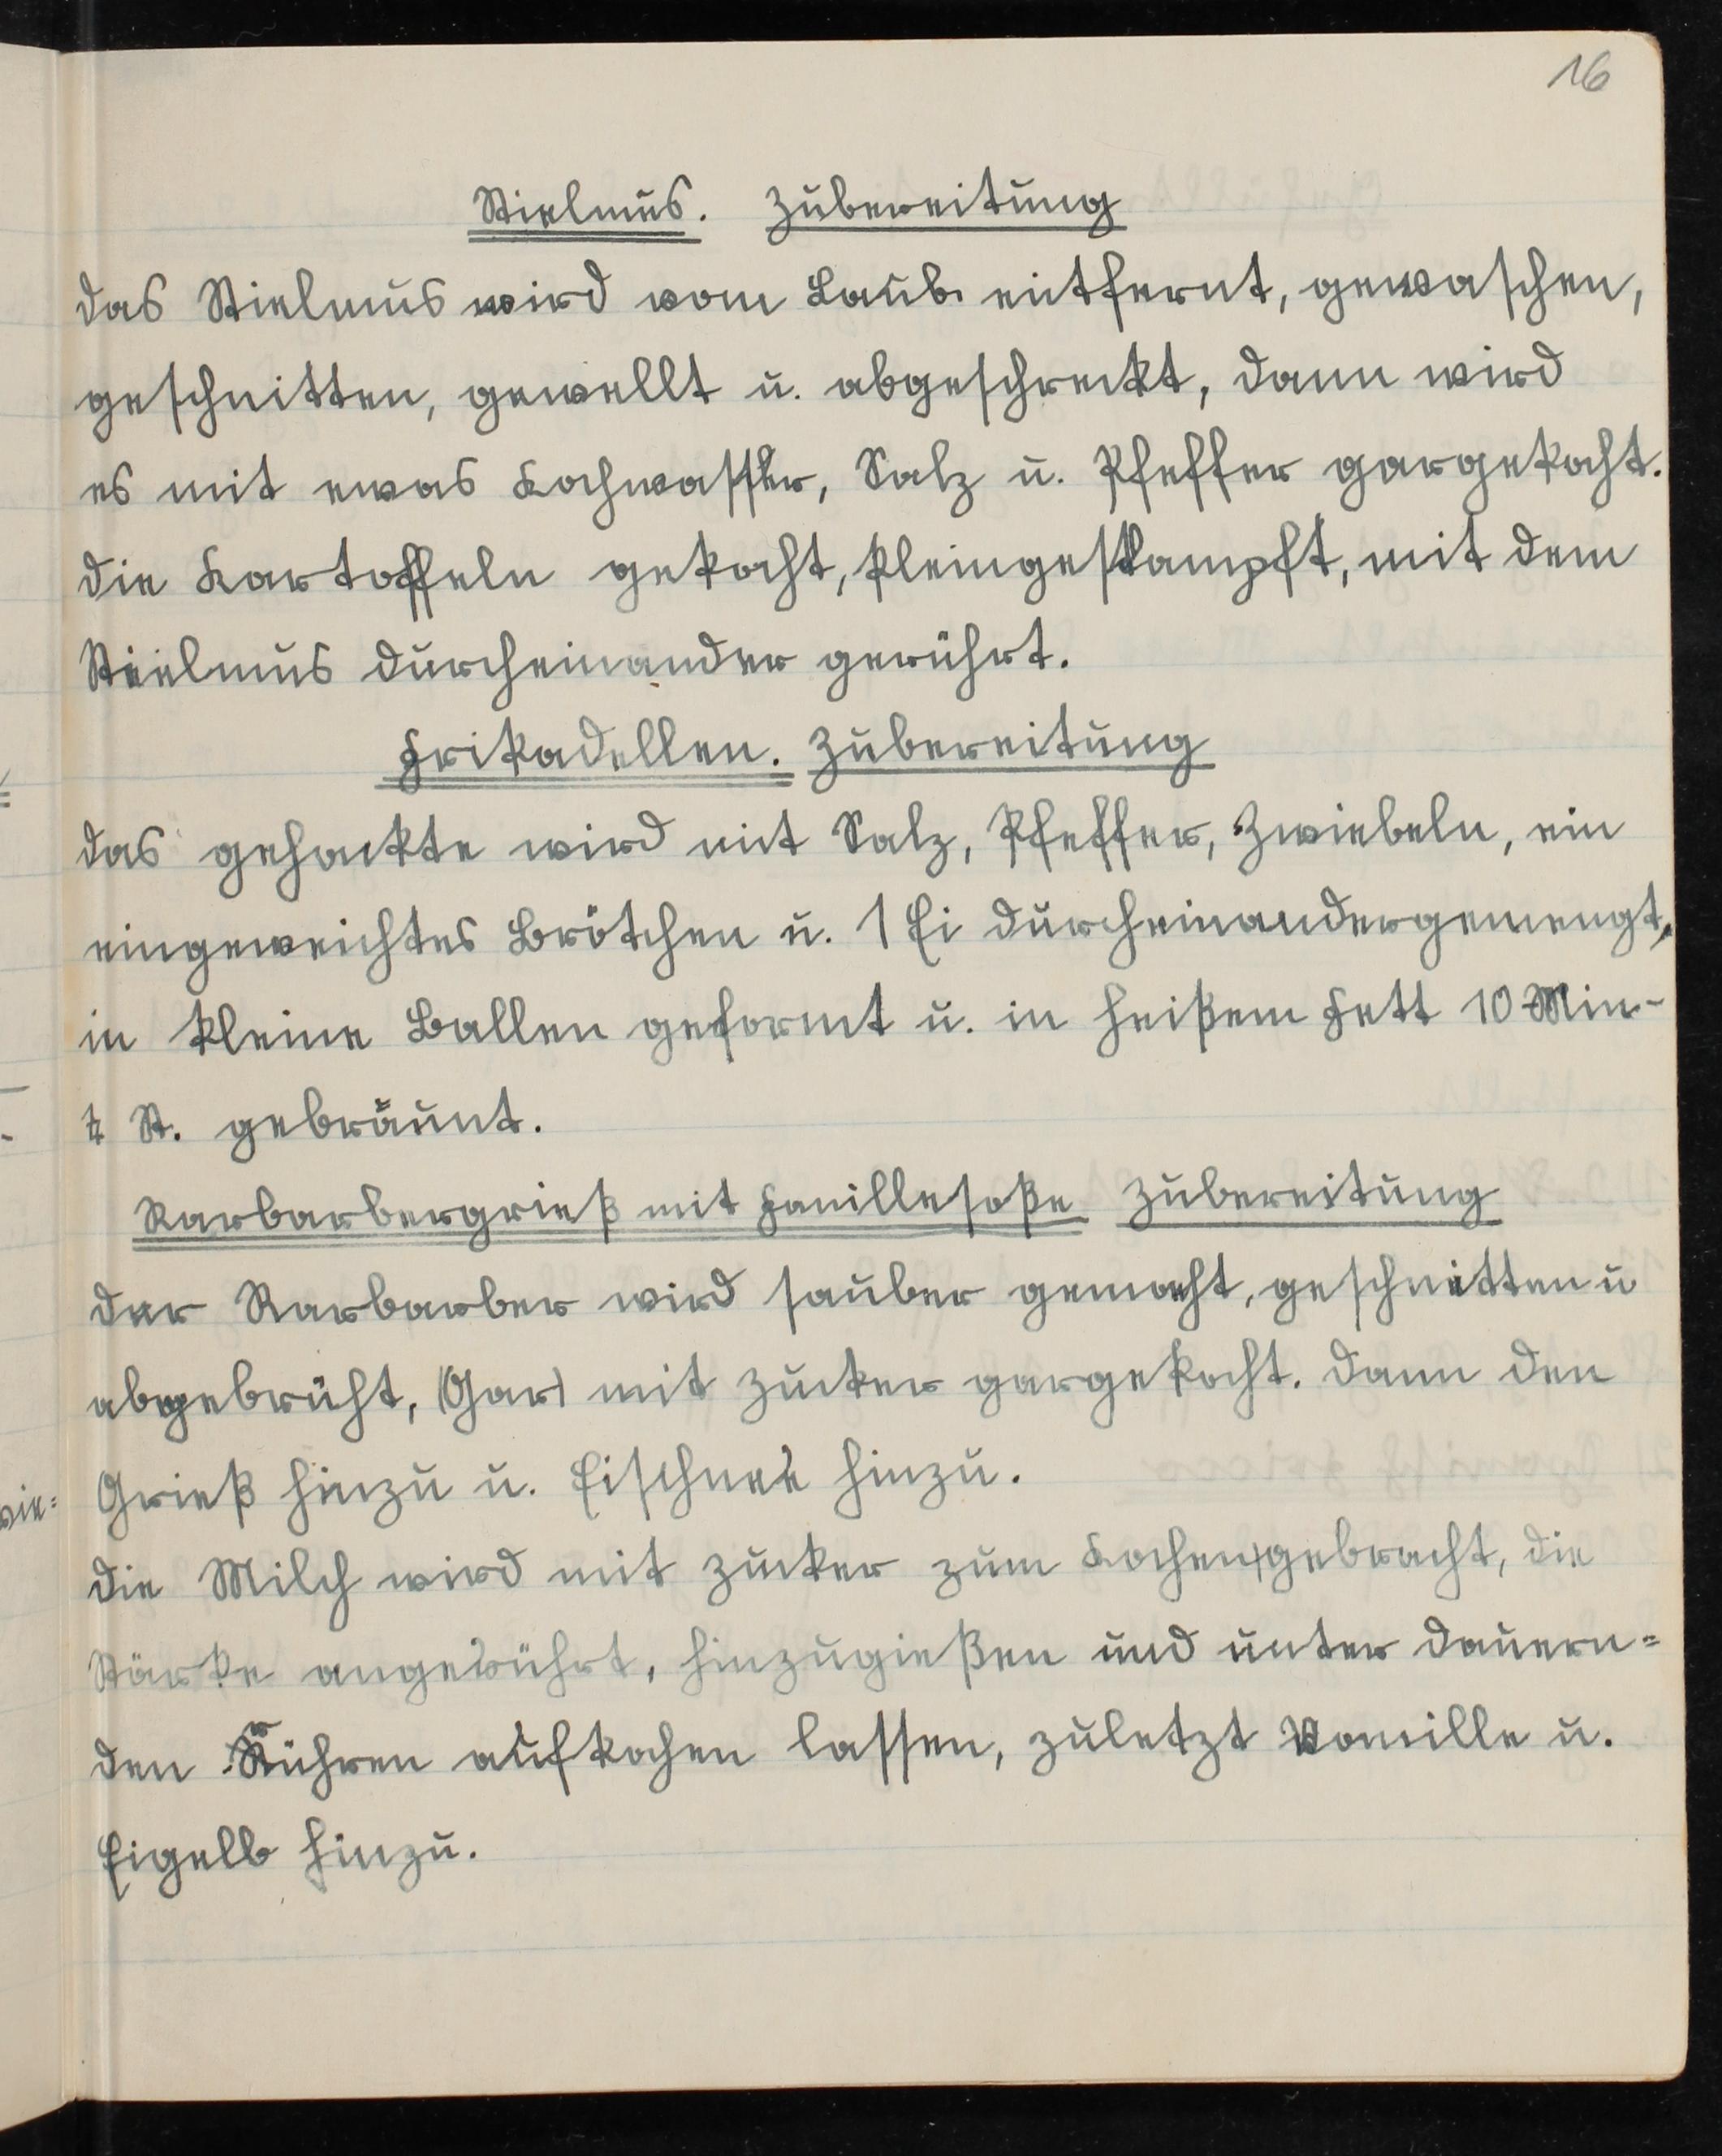 16
Stielmus. Zubereitung
das Stielmus wird vom Laub entfernt, gewaschen,
geschnitten, gewellt u. abgeschreckt, dann wird
es mit ewas Kochwasser, Salz u. Pfeffer gargekocht.
die Kartoffeln gekocht, kleingestampft, mit dem
Stielmus durcheinander gerührt.
Frikadellen. Zubereitung
das gehackte wird mit Salz, Pfeffer, Zwiebeln, ein
eingeweichtes Brötchen u. 1 Ei durcheinandergemengt,
in kleine Ballen geformt u. in heißem Fett 10 Min-
St. gebräunt.
Rarbarbergrieß mit Fanillesoße Zubereitung
der Rarbarber wird sauber gemacht, geschnitten u
abgebrüht, (Gar) mit Zucker gargekocht. dann den
Grieß hinzu u. Eischnee hinzu.
wie=
die Milch wird mit Zucker zum Kochen gebracht, die
Stärke angerührt, hinzugießen und unter dauern=
den Rühren aufkochen lassen, zuletzt Vanille u.
Eigelb hinzu.